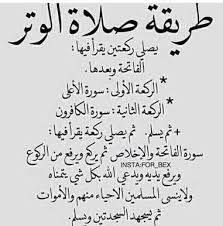 طريقة صلاة الوتر
يصلي ركعتين يقرأ فيها :
الفاتحة وبعدها .
* الركعة الأولى : سورة الأعلى
* الركعة الثانية : سورة الكافرون
+ ثم يسلم . ثم يصلي ركعة يقرأ فيها :
سورة الفاتحة والإخلاص ثم يركع ويرفع من الركوع
INSTA:FOR_BEX
ويرفع يديه ويدعي الله بكل شي يتمناه
ولا ينسى المسلمين الاحياء منهم والأموات
ثم يسجهد السجدتين ويسلم .